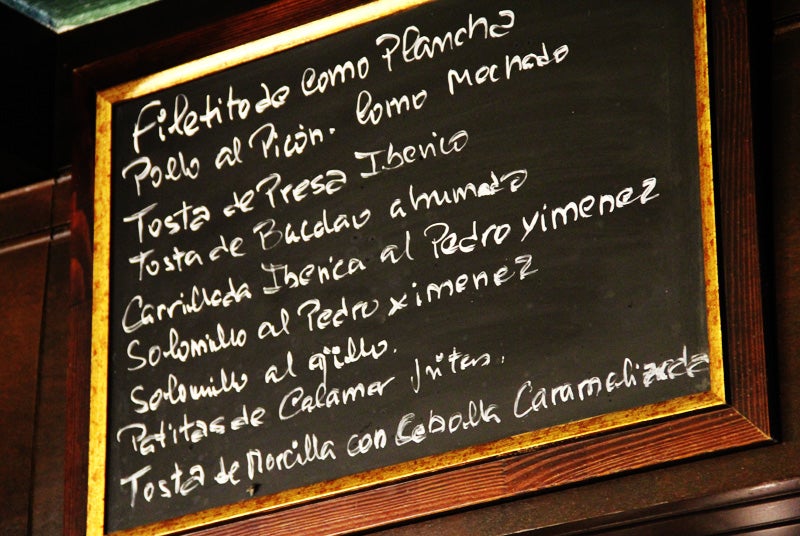 Filetito de Lomo Plancha
Pollo al Picón. Lomo Mechado
Tosta de Presa Iberico
Tosta de Bacalao ahumado
Carrillada Iberica al Pedro yimenez
Solomillo al Pedro ximenez
Solomillo al ajillo.
Patitas de Calamar fritas.
Tosta de Morcilla con Cebolla Caramelizada